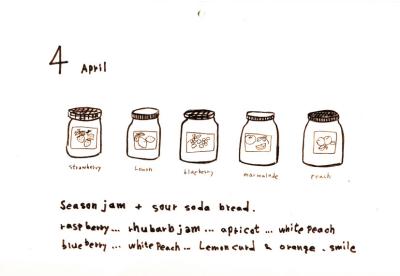 4 April
strawberry
Lemon
blueberry
marmalade
peach
Season jam + sour soda bread.
raspberry... rhubarb jam... apricot... white Peach
blueberry... white Peach... Lemon curd & orange. smile